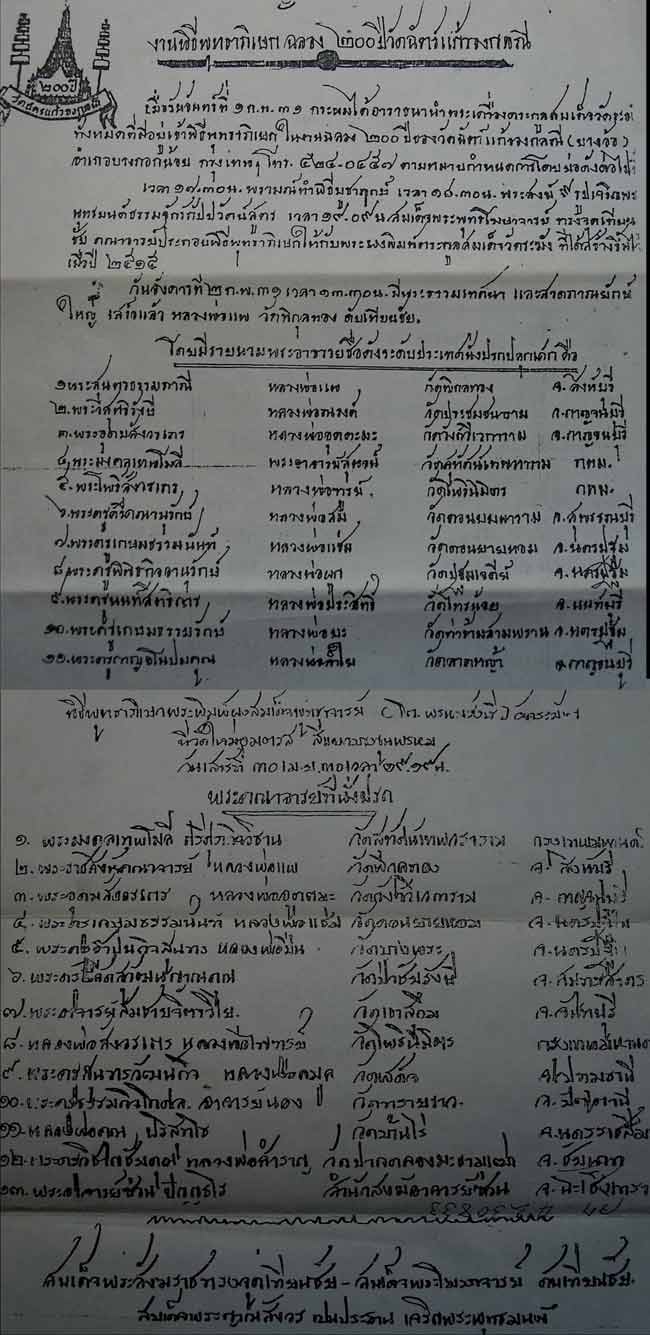 งานพิธีพุทธาภิเษก ฉลอง ๒๐๐ ปี วัดฉัตรแก้วจงกลณี
๒๐๐ปี
วัดฉัตรแก้วจงกลณี
เมื่อวันจันทร์ที่ ๑ ก.พ. ๓๑ กระผมได้อาราธนานำพระเครื่องตระกูลสมเด็จวัดระฆัง
ทั้งหมดที่มีอยู่เข้าพิธีพุทธาภิเษก ในงานฉลอง ๒๐๐ ปีของวัดฉัตรแก้วจงกลณี (บางอ้อ)
อำเภอบางกอกน้อย กรุงเทพฯ โทร. ๔๒๔-๐๔๔๗ ตามหมายกำหนดการโดยย่อดังต่อไปนี้
เวลา ๑๗.๓๐น. พราหมณ์ทำพิธีบูชาฤกษ์ เวลา ๑๘.๓๐น. พระสงฆ์ รูปเจริญพระ
พุทธมนต์ธรรมจักรกัปปวัตนสูตร เวลา ๑๙.๐๙น สมเด็จพระพุทธโฆษาจารย์ ทรงจุดเทียน
ชัย คณาจารย์ประกอบพิธีพุทธาภิเษกให้กับพระผงพิมพ์ตระกูลสมเด็จวัดระฆัง ที่ได้สร้างขึ้น
เมื่อปี ๒๕๑๕
วันอังคารที่ ๒ ก.พ. ๓๑ เวลา ๑๓.๓๐น. มีพระธรรมเทศนา และสวดภาณยักษ์
ใหญ่ เสร็จแล้ว หลวงพ่อแพ วัดพิกุลทอง ดับเทียนชัย.
โดยมีรายนามพระอาจารย์ชื่อดังระดับประเทศนั่งปรกปลุกเสก คือ
๑พระสุนทรธรรมภาณี หลวงพ่อแพ วัดพิกุลทอง จ.สิงห์บุรี
๒.พระวิสุทธิรังษี หลวงพ่อณรงค์ จ.กาญจนบุรี
๓.พระอุดมสังวรเถร หลวงพ่ออุตตมะ วัดวังก์วิเวการาม จ.กาญจนบุรี
๔.พระมงคลเทพโมลี พระอาจารย์สุจินต์ วัดสุทัศน์เทพวราราม กทม.
๕.พระโพธิสังวรเถร หลวงพ่อฑูรย์ วัดโพธินิมิตร กทม.
๖.พระครู หลวงพ่อ วัดดอน จ.สุพรรณบุรี
๗.พระครูเกษมธรรมนันท์ หลวงพ่อแช่ม วัดดอนยายหอม จ.นครปฐม
๘.พระครูพิพิธกิจจานุรักษ์ หลวงพ่อ วัดปฐมเจดีย์ จ.นครปฐม
๙.พระครูนนทสิทธิการ หลวงพ่อประสิทธิ์ วัดไทรน้อย จ.นนทบุรี
๑๐.พระครูเกษมธรรมรักษ์ หลวงพ่อ วัดท่าข้ามสามพราน จ.นครปฐม
๑๑.พระครูกาญจโนปมคุณ หลวงพ่อลำไย วัดลาดหญ้า จ.กาญจนบุรี
พิธีพุทธาภิเษกพระพิมพ์ผงสมเด็จพระพุฒาจารย์ (โต พรหมรังสี) วัดระฆังฯ
ที่วัดใหม่อมตรส บางขุนพรหม
วันเสาร์ที่ ๓๐ เม.ย. ๓๑ เวลา ๑๙.๑๙น.
พระคณาจารย์ที่นั่งปรก
๑. พระมงคลเทพโมลี วัดสุทัศน์เทพวราราม กรุงเทพมหานคร
๒. พระราชสิงหคณาจารย์ หลวงพ่อแพ วัดพิกุลทอง จ.สิงห์บุรี
๓. พระอุดมสังวรเถร หลวงพ่ออุตตมะ วัดวังก์วิเวการาม จ.กาญจนบุรี
๔. พระครูเกษมธรรมนันท์ หลวงพ่อแช่ม วัดดอนยายหอม จ.นครปฐม
๕. พระครูฐาปนกิจสุนทร หลวงพ่อเปิ่น วัดบางพระ จ.นครปฐม
๖. พระครู วัดป่าชัยรังสี จ.สมุทรสาคร
๗. พระอาจารย์สมชายจิตวิโย. วัดเขาสุกิม จ.จันทบุรี
๘. หลวงพ่อสังวรเถร หลวงพ่อไพฑูรย์ วัดโพธินิมิตร กรุงเทพมหานคร
๙. พระครูสุนทรวัฒนกิจ หลวงพ่อ วัดเสด็จ จ.ปทุมธานี
๑๐. พระครูธรรมกิจโกศล. อาจารย์นอง วัดทรายขาว จ.ปัตตานี
๑๑. หลวงพ่อคูณ ปริสุทโธ วัดบ้านไร่ จ.นครราชสีมา
๑๒. พระครู หลวงพ่อสำราญ วัดปากคลองมะขามเฒ่า จ.ชัยนาท
๑๓. พระอาจารย์ สำนักสงฆ์อาจารย์ จ.ฉะเชิงเทรา
สมเด็จพระสังฆราชทรงจุดเทียนชัย - สมเด็จพระ ดับเทียนชัย.
สมเด็จพระญาณสังวร เป็นประธาน เจริญพระพุทธมนต์